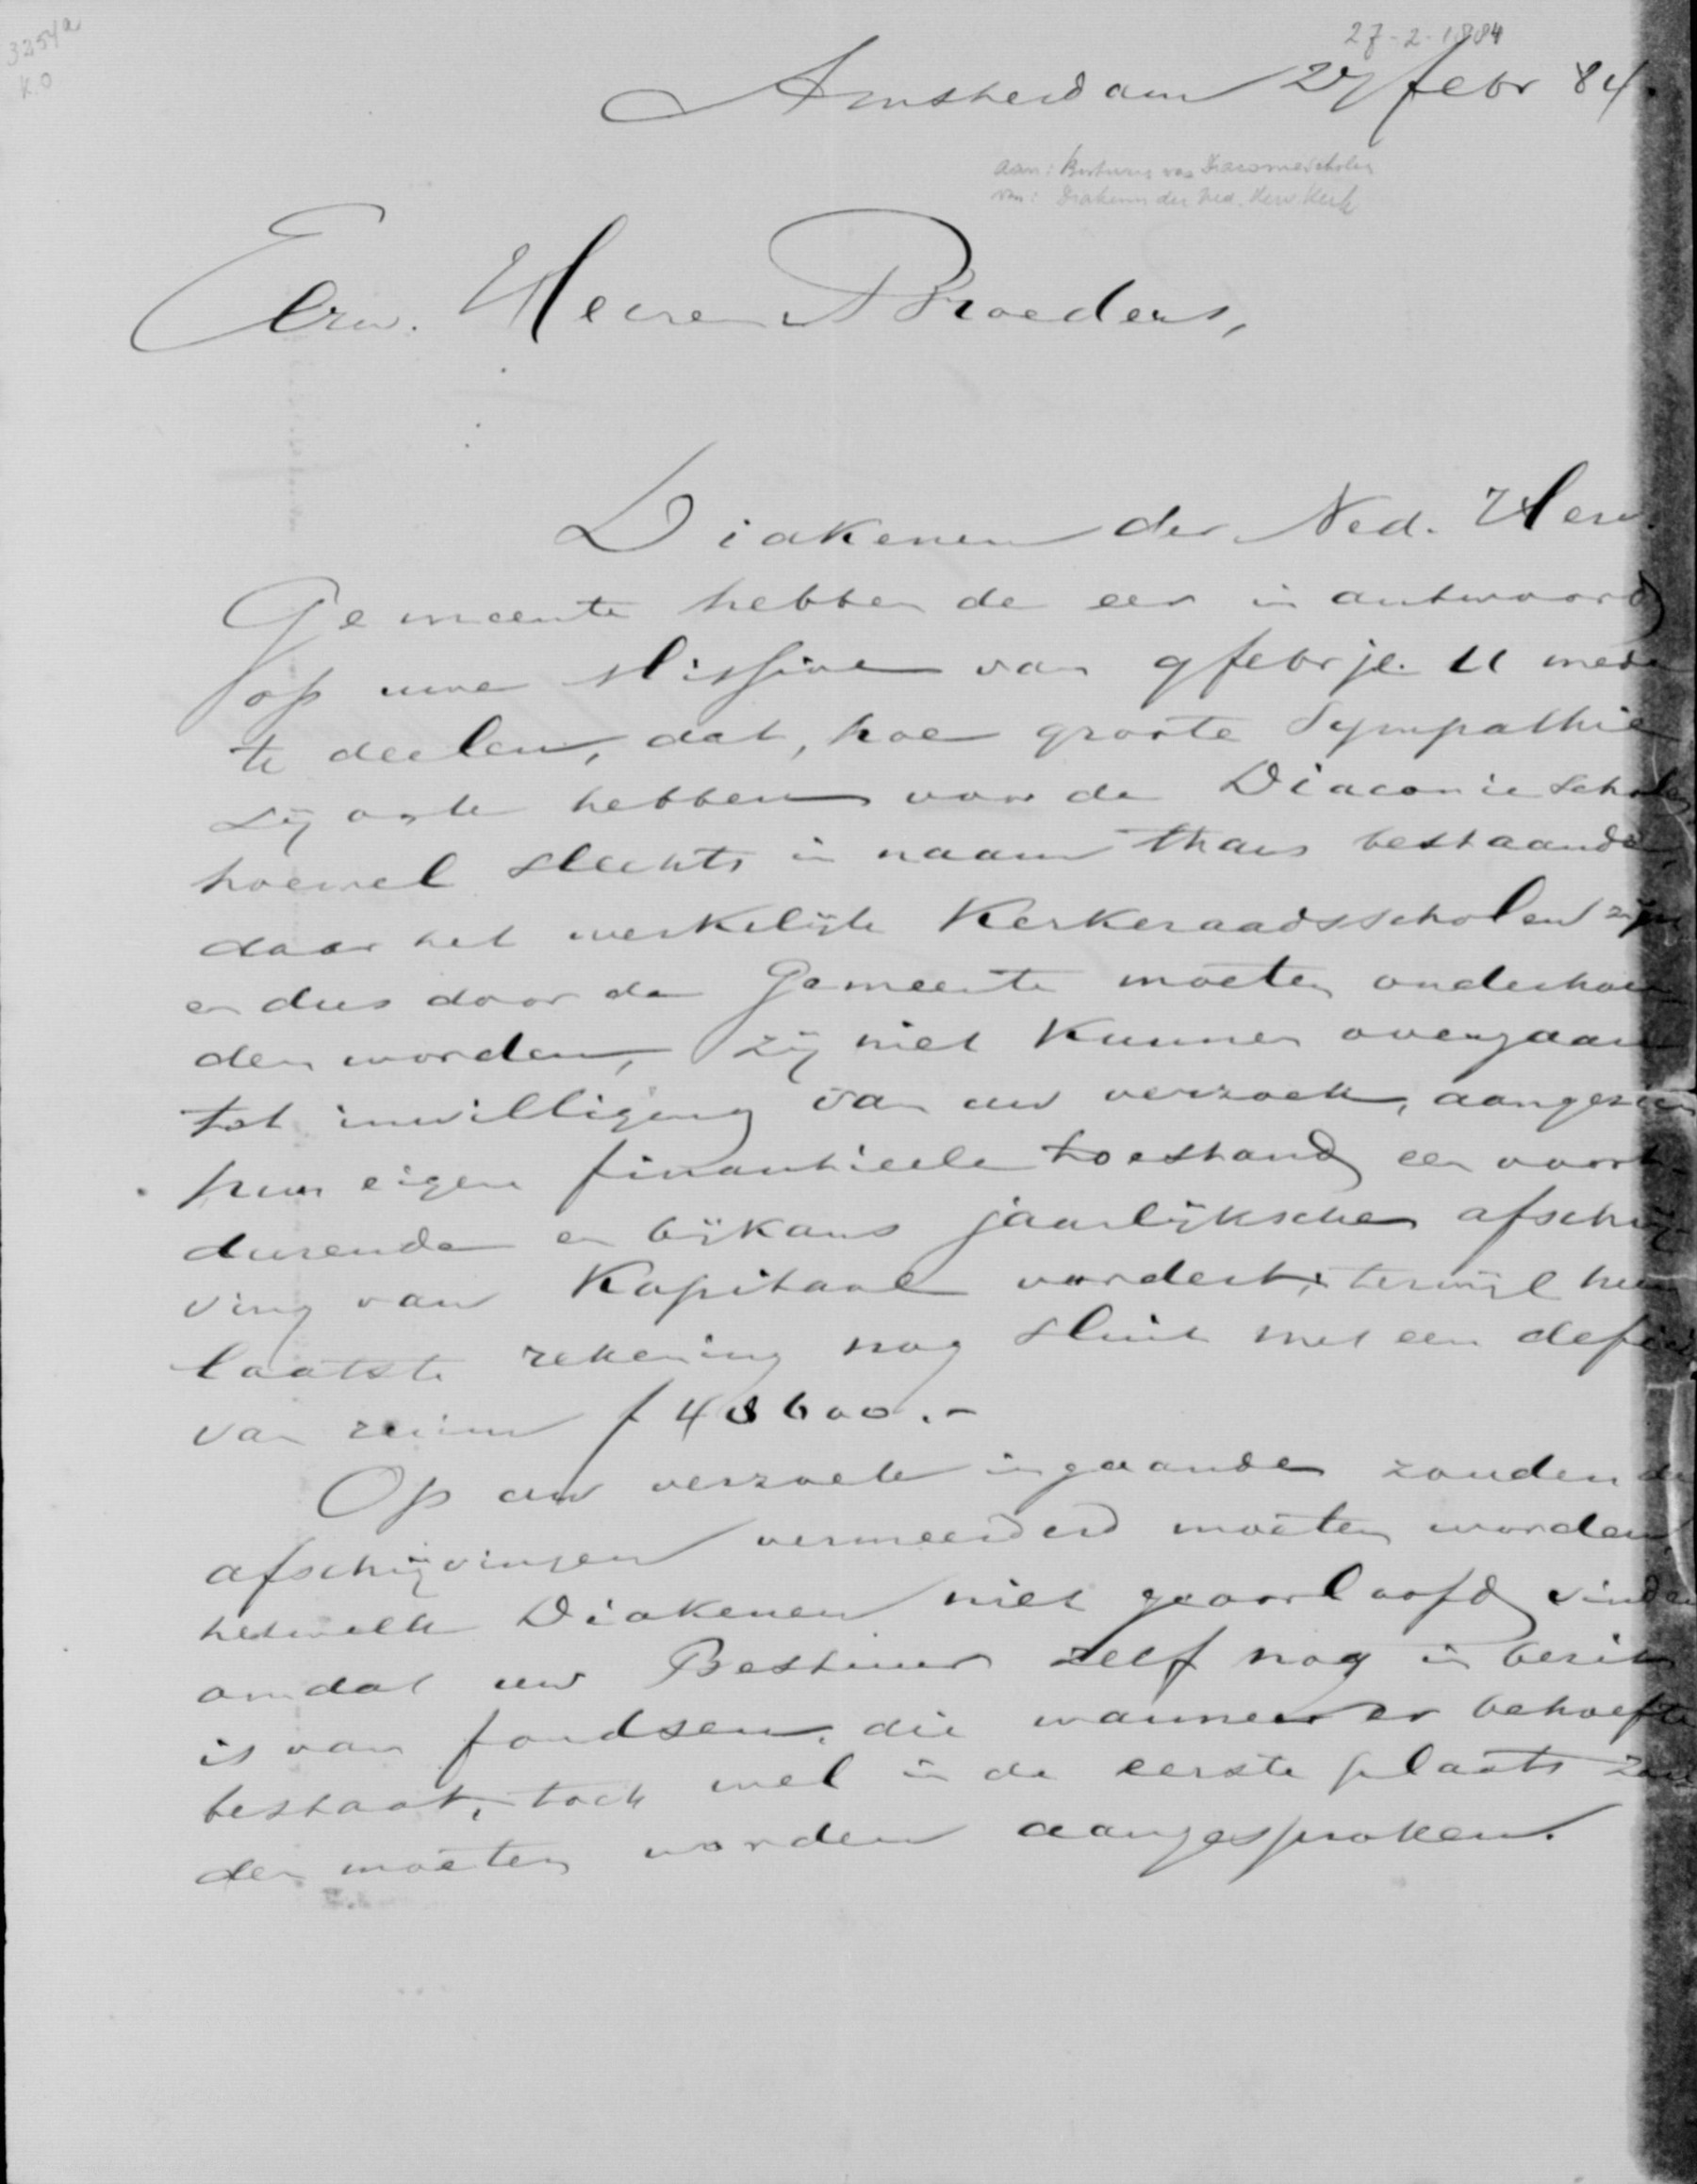 3254a
K.O
27-2-1884
Amsterdam 27 febr 84.
aan: Bestuur van Diaconiescholen
van: Diakenen der Ned. Herv. Kerk
Eerw. Heeren Broeders,
Diakenen der Ned. Herv.
Gemeente hebben de eer in antwoord
op uwe Missive van 9 febr jl. U mede
te deelen, dat, hoe groote Sympathie
zij ook hebben voor de Diaconie Scholen
hoewel slechts in naam thans bestaande,
daar het werkelijk Kerkeraadsscholen zijn
en dus door de Gemeente moeten onderhou
den worden, zij niet kunnen overgaan
tot inwilliging van uw verzoek, aangezien
hun eigen finantieele toestand een voort-
durende en bijkans jaarlijksche afschrij
ving van Kapitaal vordert, terwijl hun
laatste rekening nog sluit met een defici
van ruim f 48600.-
Op uw verzoek ingaande zouden de
afschrijvingen vermeerderd moeten worden
hetwelk Diakenen niet geoorloofd vinden
omdat uw Bestuur zelf nog in bezit
is van fondsen, die wanneer er behoefte
bestaat, toch wel in de eerste plaats zou
den moeten worden aangesproken.